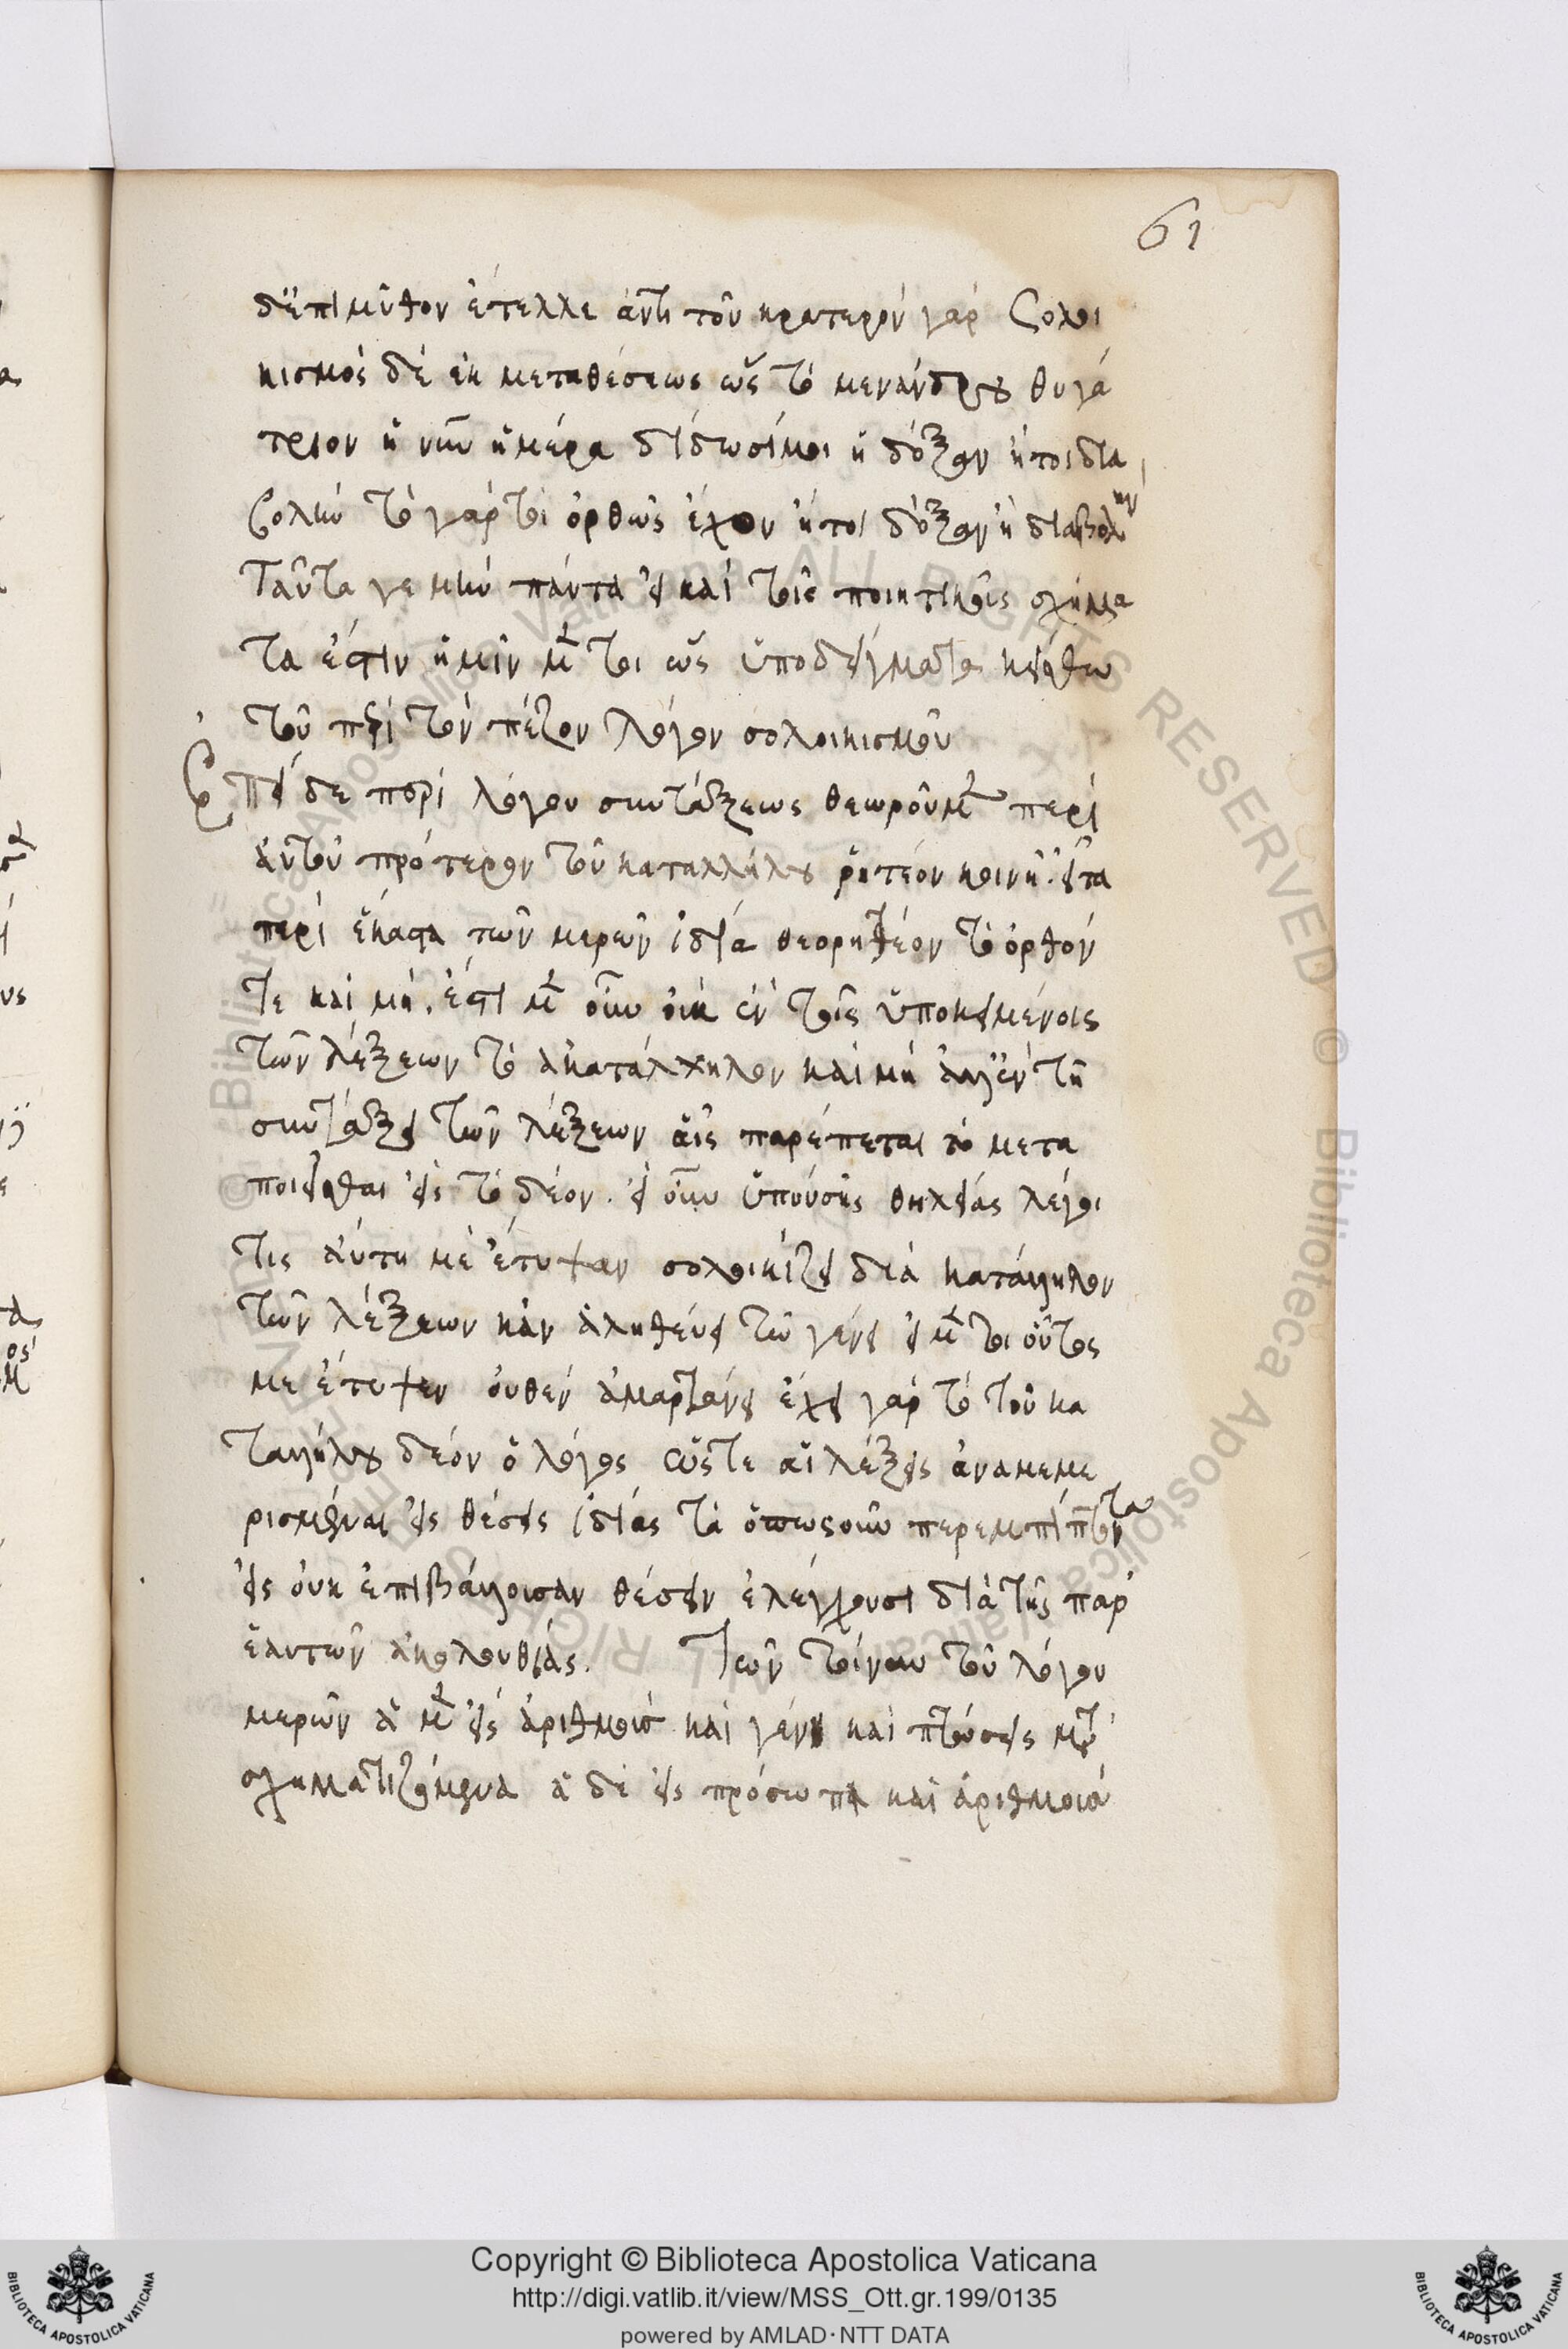 61
δ' ἐπὶ μῦθον ἔτελλε ἀντὶ τοῦ κρατερόν γάρ Σολοι
κισμός δὲ ἐκ μεταθέσεως ὡς τὸ μενάνδρου θυγά
τριον ἡ νῦν ἡμέρα δίδωσί μοι ἢ δόξαν ἤτοι δια
βολὴν τὸ γάρ τοι ὀρθῶς ἔχον ἤτοι δόξαν ἢ διαβολὴν
Ταῦτα γε μὴν πάντα εἰ καὶ τοῖς ποιητικοῖς σχήμα
τα ἐστὶν ἡμῖν μέντοι ὡς ὑποδείγματα κείσθω
τοῦ περὶ τὸν πέζον λόγον σολοικισμοῦ
Ἐπεί δε περὶ λόγου συντάξεως θεωροῦμεν περὶ
αὐτοῦ πρότερον τοῦ καταλλήλου ῥητέον κοινῇ. εἶτα
περὶ ἕκαστα τῶν μερῶν ἰδία θεορητέον τὸ ὀρθόν
τε καὶ μή. ἐστὶ μὲν οὖν οὐκ ἐν τοῖς ὑποκειμένοις
τῶν λέξεων τὸ ἀκατάλληλον καὶ μὴ ἀλλ' ἐν τῇ
συντάξει τῶν λέξεων αἷς παρέπεται τὸ μετα
ποιεῖσθαι εἰς τὸ δέον. εἰ οὖν ὑπούσης θηλείας λέγοι
τις αὕτη με ἔτυψαν σολοικίζει διὰ κατάλληλον
τῶν λέξεων κἂν ἀληθεύει τῷ γένει εἰ μέν τοι οὗτος
με ἔτυψεν οὐθὲν ἁμαρτάνει ἔχει γάρ τὸ τοῦ κα
ταλλήλου δέον ὁ λόγος ὥστε αἱ λέξεις ἀναμεμε
ρισμέναι εἰς θέσεις ἰδίας τὰ ὁπωσοῦν περεμπίπτοντα
εἰς οὐκ ἐπιβάλλουσαν θέσειν ἐλέγχουσι διὰ τῆς παρ'
ἑαυτῶν ἀκολουθίας. Τῶν τοίνυν τοῦ λόγου
μερῶν ἃ μὲν εἰς ἀριθμούς καὶ γένη καὶ πτώσεις
σχηματιζόμενα ἃ δὲ εἰς πρόσωπα καὶ ἀριθμούς
Copyright © Biblioteca Apostolica Vaticana
http://digi.vatlib.it/view/MSS_Ott.gr.199/0135
powered by AMLAD·NTT DATA